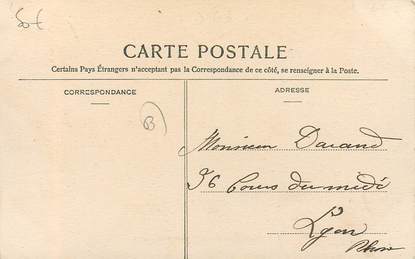 50€
CARTE POSTALE
Certains Pays Étrangers n'acceptent pas la Correspondance de ce côté, se renseigner à la Poste.
CORRESPONDANCE
ADRESSE
B
Monsieur Durand
36 Cours du midi
Lyon
Rhône